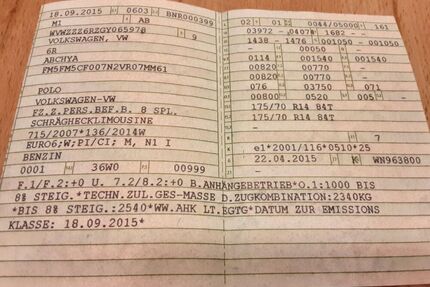 18.09.2015 0603 BNR000399
M1 AB
WVWZZZ6RZGY065978 9
VOLKSWAGEN, VW
6R
ABCHYA
FM5FM5CF007N2VR07MM61
POLO
VOLKSWAGEN-VW
FZ.Z.PERS.BEF.B. 8 SPL.
SCHRÄGHECKLIMOUSINE
715/2007*136/2014W
EURO6;W;PI/CI; M, N1 I
BENZIN
0001 36W0 00999
02 01 0044/05000 161
03972 -04078 1682 - -
1438 - 1476 001050 -001050
- 00050 - -
0114 001540 001540
00820 00770 -
00820 00770 -
076 03750 071
00800 0520 005
175/70 R14 84T
175/70 R14 84T
-
- 7
e1*2001/116*0510*25
22.04.2015 K WN963800
F.1/F.2:+0 U. 7.2/8.2:+0 B.ANHÄNGEBETRIEB*O.1:1000 BIS
8% STEIG.*TECHN.ZUL.GES-MASSE D.ZUGKOMBINATION:2340KG
*BIS 8% STEIG.:2540*WW.AHK LT.EGTG*DATUM ZUR EMISSIONS
KLASSE: 18.09.2015*